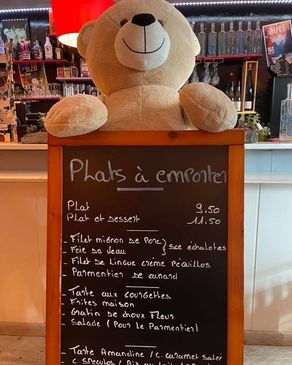 Plats à emporter
Plat 9.50
Plat et dessert 11.50
_ Filet mignon de Porc
_ Foie de Veau } sce échalotes
_ Filet de Lingue crème
_ Parmentier de canard
_ Tarte aux courgettes
_ Frites maison
_ Gratin de choux Fleur
_ Salade (Pour le Parmentier)
_ Tarte Amandine / c. caramel salé
c. speculos /